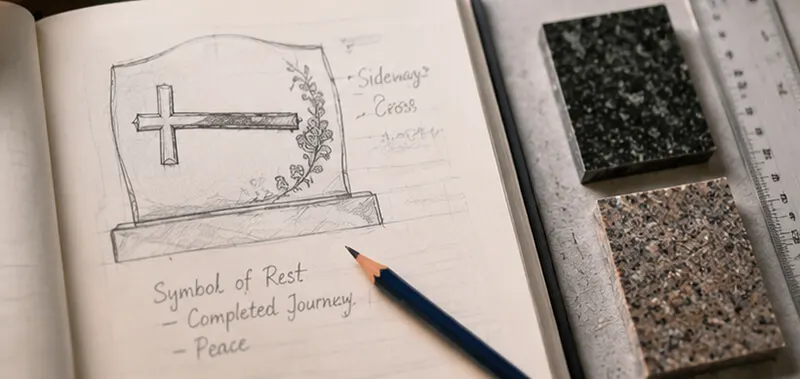 - Sideways
- Cross
Symbol of Rest
- Completed Journey
- Peace